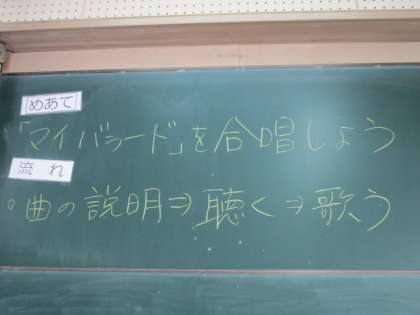 めあて
「マイバラード」を合唱しよう
流れ
。曲の説明⇒聴く⇒歌う